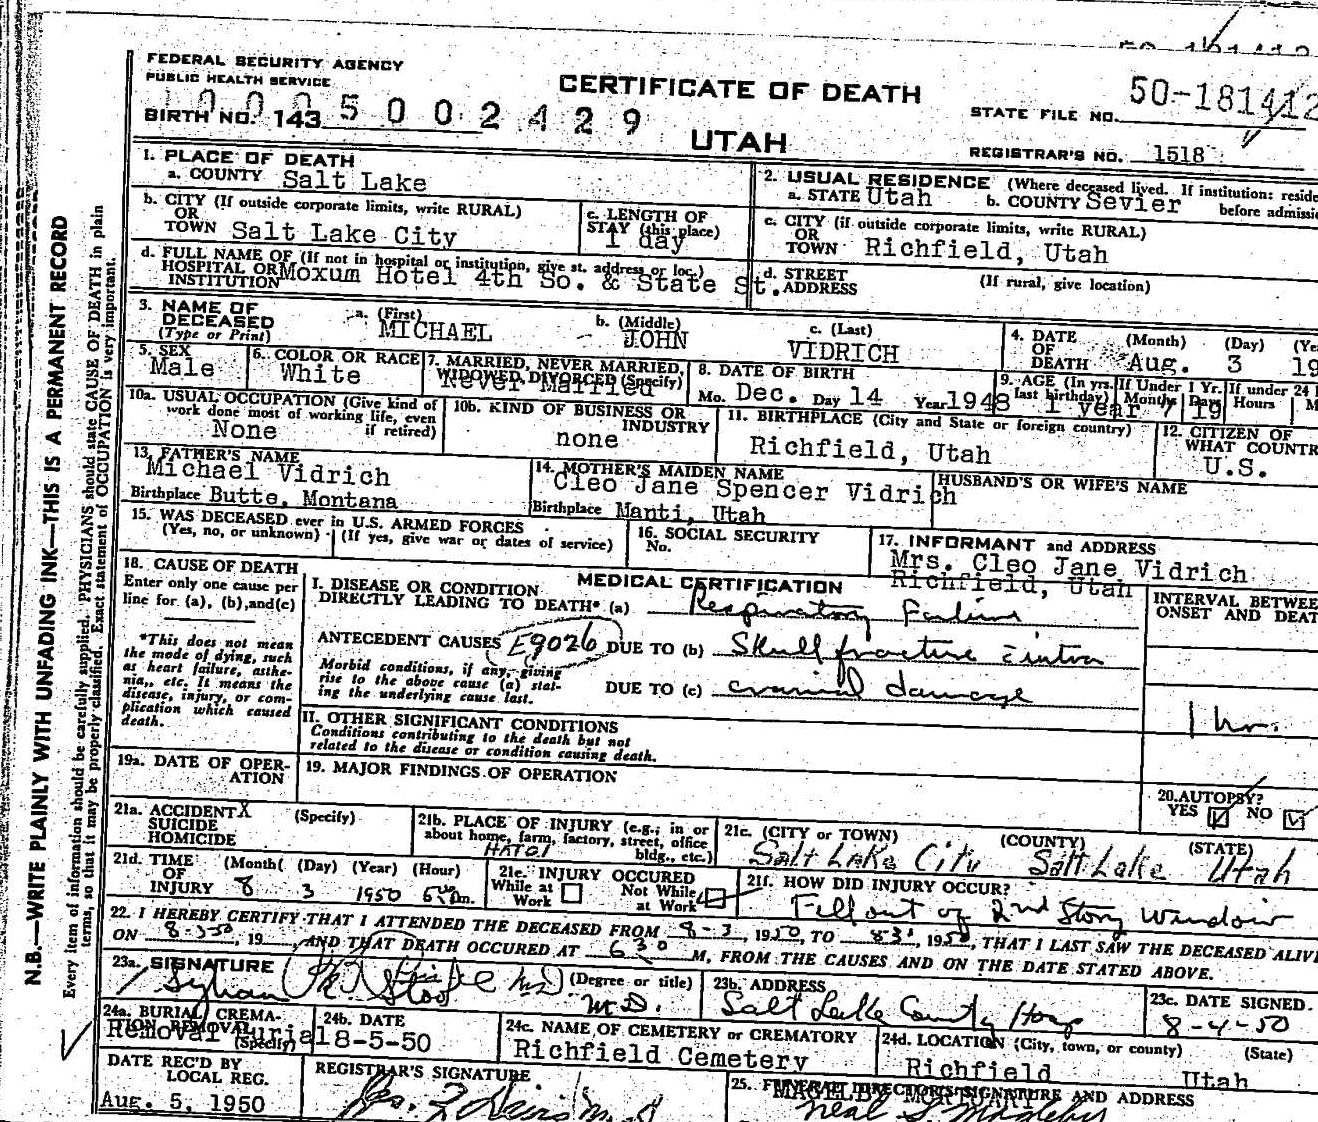 FEDERAL SECURITY AGENCY
PUBLIC HEALTH SERVICE
CERTIFICATE OF DEATH
STATE FILE NO. 50-181412
BIRTH NO. 143 5 0 0 2 4 2 9
UTAH
REGISTRAR'S NO. 1518
1. PLACE OF DEATH
a. COUNTY Salt Lake
2. USUAL RESIDENCE (Where deceased lived. If institution: reside
a. STATE Utah b. COUNTY Sevier before admissi
b. CITY (If outside corporate limits, write RURAL)
OR
TOWN Salt Lake City
c. LENGTH OF
STAY (this place)
1 day
c. CITY (if outside corporate limits, write RURAL)
OR
TOWN Richfield, Utah
d. FULL NAME OF (If not in hospital or institution, give st. address or loc.)
HOSPITAL OR
INSTITUTION Moxum Hotel 4th So. & State St.
d. STREET
ADDRESS
(If rural, give location)
3. NAME OF
DECEASED
(Type or Print)
a. (First)
MICHAEL
b. (Middle)
JOHN
c. (Last)
VIDRICH
4. DATE
OF
DEATH
(Month) (Day) (Ye
Aug. 3 19
5. SEX
Male
6. COLOR OR RACE
White
7. MARRIED, NEVER MARRIED,
WIDOWED, DIVORCED (Specify)
Never Married
8. DATE OF BIRTH
Mo. Dec. Day 14 Year 1948
9. AGE (In yrs.
last birthday)
1 year
If Under 1 Yr.
Months Days
7 19
If under 24
Hours M
10a. USUAL OCCUPATION (Give kind of
work done most of working life, even
if retired)
None
10b. KIND OF BUSINESS OR
INDUSTRY
none
11. BIRTHPLACE (City and State or foreign country)
Richfield, Utah
12. CITIZEN OF
WHAT COUNTR
U.S.
13. FATHER'S NAME
Michael Vidrich
Birthplace Butte, Montana
14. MOTHER'S MAIDEN NAME
Cleo Jane Spencer Vidrich
Birthplace Manti, Utah
HUSBAND'S OR WIFE'S NAME
15. WAS DECEASED ever in U.S. ARMED FORCES
(Yes, no, or unknown) (If yes, give war or dates of service)
16. SOCIAL SECURITY
No.
17. INFORMANT and ADDRESS
Mrs. Cleo Jane Vidrich
Richfield, Utah
18. CAUSE OF DEATH
Enter only one cause per
line for (a), (b), and (c)
*This does not mean
the mode of dying, such
as heart failure, asthe-
nia, etc. It means the
disease, injury, or com-
plication which caused
death.
MEDICAL CERTIFICATION
I. DISEASE OR CONDITION
DIRECTLY LEADING TO DEATH* (a) Respiratory Failure
ANTECEDENT CAUSES E9026 DUE TO (b) Skull fracture c̄ intra
Morbid conditions, if any, giving
rise to the above cause (a) stat-
ing the underlying cause last.
DUE TO (c) cranial damage
INTERVAL BETWEE
ONSET AND DEAT
1 hr.
II. OTHER SIGNIFICANT CONDITIONS
Conditions contributing to the death but not
related to the disease or condition causing death.
19a. DATE OF OPER-
ATION
19. MAJOR FINDINGS OF OPERATION
20. AUTOPSY?
YES NO
21a. ACCIDENT X (Specify)
SUICIDE
HOMICIDE
21b. PLACE OF INJURY (e.g., in or
about home, farm, factory, street, office
bldg., etc.)
HATOl
21c. (CITY or TOWN) (COUNTY) (STATE)
Salt Lake City Salt Lake Utah
21d. TIME
OF
INJURY
(Month) (Day) (Year) (Hour)
8 3 1950 5 m.
21e. INJURY OCCURED
While at
Work
Not While
at Work
21f. HOW DID INJURY OCCUR?
Fell out of 2nd Story Window
22. I HEREBY CERTIFY THAT I ATTENDED THE DECEASED FROM 8-3, 1950, TO 8 3, 1950, THAT I LAST SAW THE DECEASED ALIVE
ON 8-3-50, 19 , AND THAT DEATH OCCURED AT 6 30 M, FROM THE CAUSES AND ON THE DATE STATED ABOVE.
23a. SIGNATURE
(Degree or title)
M.D.
23b. ADDRESS
Salt Lake County Hosp
23c. DATE SIGNED.
8-4-50
24a. BURIAL, CREMA-
TION, REMOVAL
(Specify)
Removal Burial
24b. DATE
8-5-50
24c. NAME OF CEMETERY or CREMATORY
Richfield Cemetery
24d. LOCATION (City, town, or county) (State)
Richfield Utah
DATE REC'D BY
LOCAL REG.
Aug. 5, 1950
REGISTRAR'S SIGNATURE
25. FUNERAL DIRECTOR'S SIGNATURE AND ADDRESS
MAGELBY MORTUARY
Neal S. Magleby
N.B.—WRITE PLAINLY WITH UNFADING INK—THIS IS A PERMANENT RECORD
Every item of information should be carefully supplied. PHYSICIANS should state CAUSE OF DEATH in plain
terms, so that it may be properly classified. Exact statement of OCCUPATION is very important.